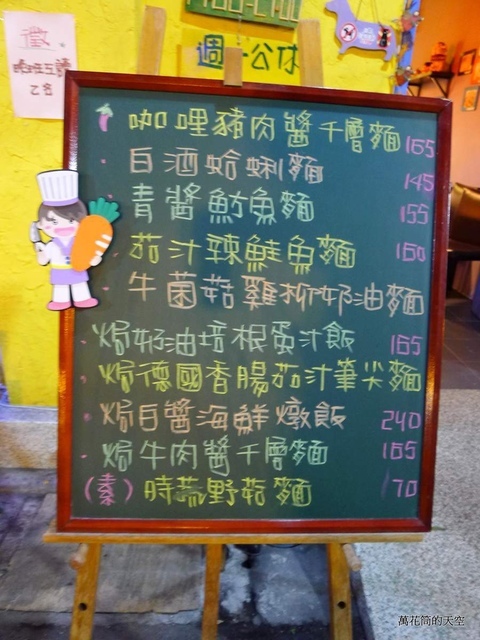 徵
晚班工讀
乙名
週一公休
咖哩豬肉醬千層麵 165
白酒蛤蜊麵 145
青醬魴魚麵 155
茄汁辣鮭魚麵 160
牛菌菇雞柳奶油麵
焗奶油培根蛋汁飯 165
焗德國香腸茄汁筆尖麵
焗白醬海鮮燉飯 240
焗牛肉醬千層麵 165
(素) 時蔬野菇麵 170
萬花筒的天空